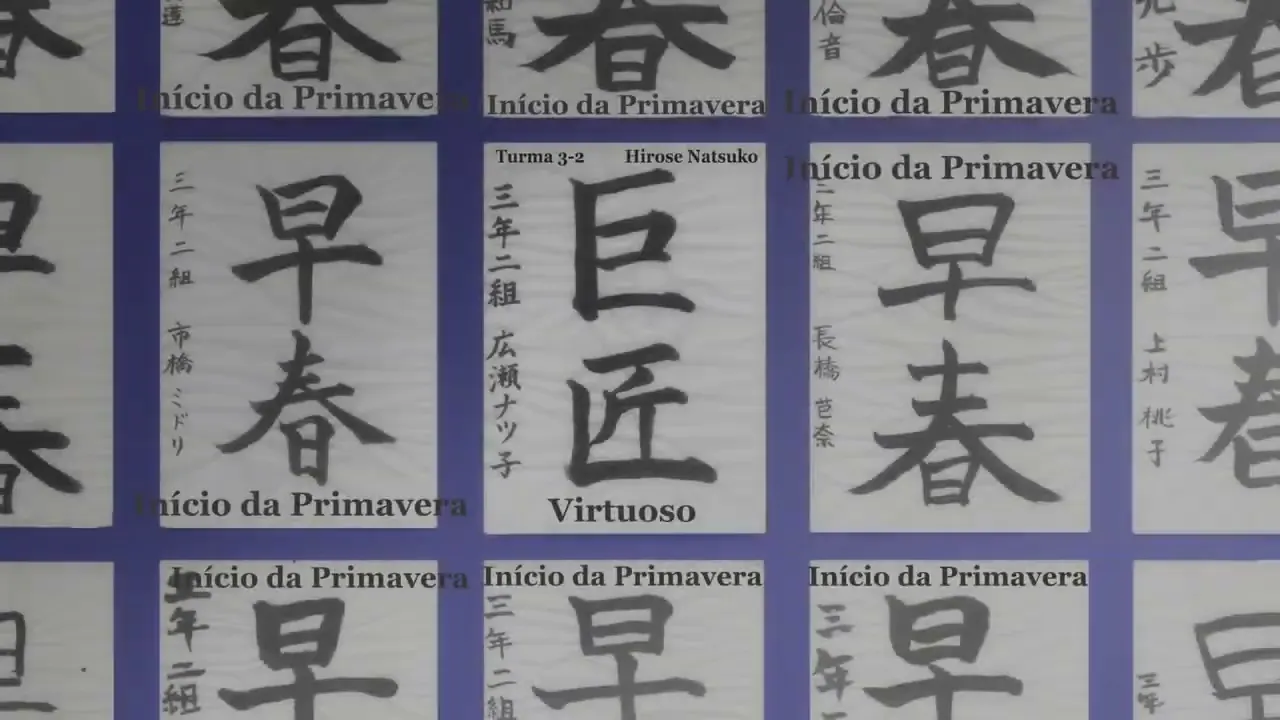 春
Início da Primavera
春
Início da Primavera
倫音
春
Início da Primavera
歩
三年二組 市橋 ミドリ
早春
Início da Primavera
Turma 3-2 Hirose Natsuko
三年二組 広瀬ナツ子
巨匠
Virtuoso
Início da Primavera
三年二組 長橋 芭奈
早春
三年二組 上村 桃子
早春
Início da Primavera
三年二組
早
Início da Primavera
三年二組
早
Início da Primavera
三年二
早
三年
早